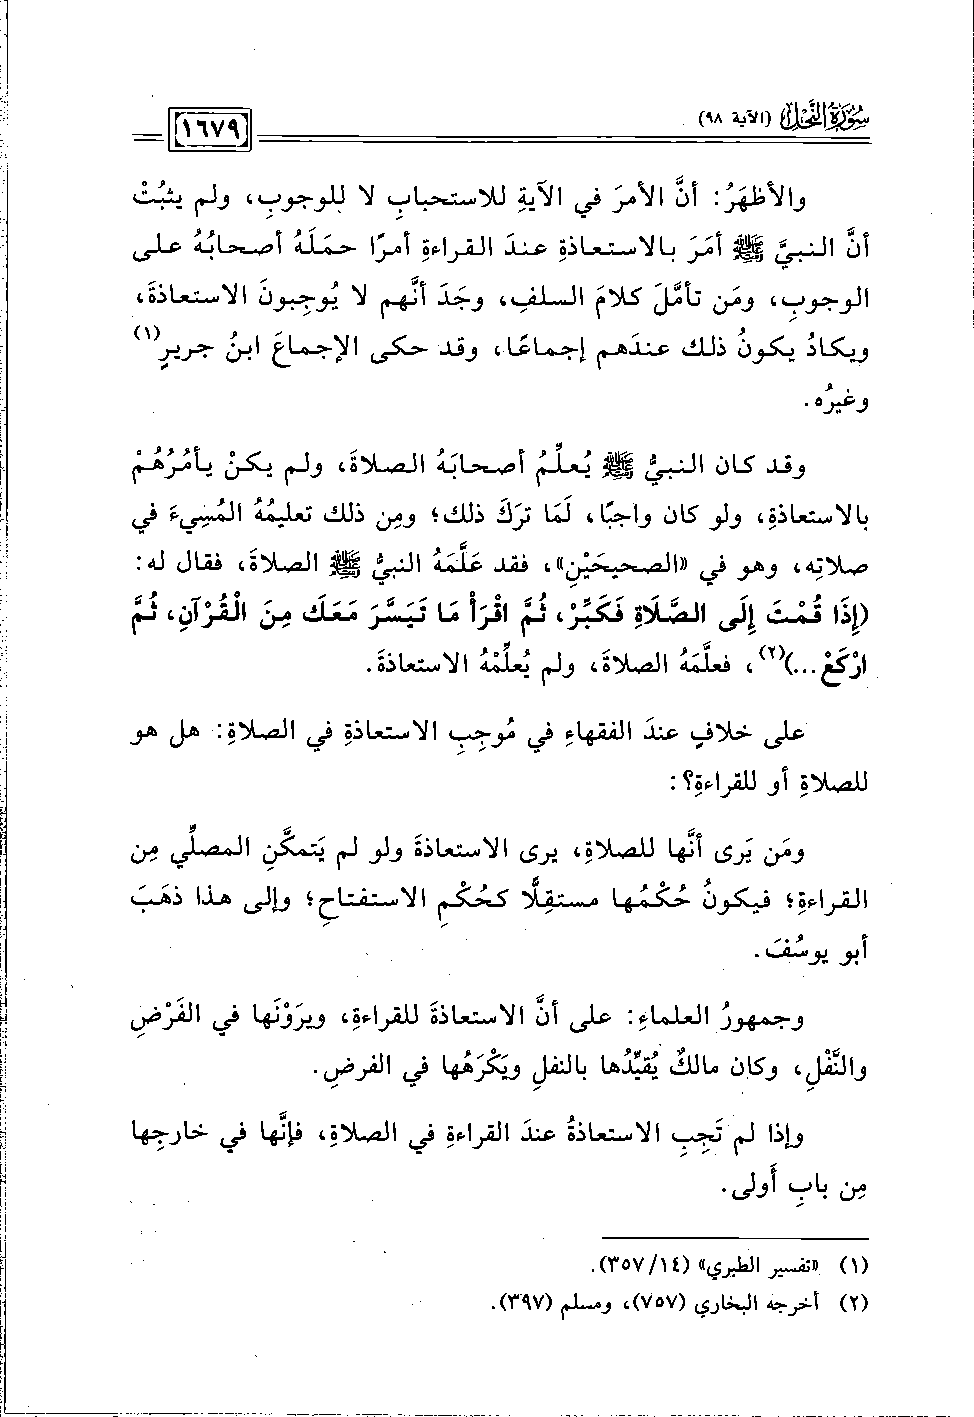 سُورَةُ النَّحْل (الآية ٩٨)
١٦٧٩
والأظهَرُ: أنَّ الأمرَ في الآيةِ للاستحبابِ لا للوجوبِ، ولم يثبُتْ
أنَّ النبيَّ ﷺ أمَرَ بالاستعاذةِ عندَ القراءةِ أمرًا حمَلَهُ أصحابُهُ على
الوجوبِ، ومَن تأمَّلَ كلامَ السلفِ، وجَدَ أنَّهم لا يُوجِبونَ الاستعاذةَ،
ويكادُ يكونُ ذلك عندَهم إجماعًا، وقد حكى الإجماعَ ابنُ جريرٍ(١)
وغيرُه.
وقد كان النبيُّ ﷺ يُعلِّمُ أصحابَهُ الصلاةَ، ولم يكنْ يأمُرُهُمْ
بالاستعاذةِ، ولو كان واجبًا، لَمَا ترَكَ ذلك؛ ومِن ذلك تعليمُهُ المُسِيءَ في
صلاتِه، وهو في «الصحيحَيْنِ»، فقد عَلَّمَهُ النبيُّ ﷺ الصلاةَ، فقال له:
(إِذَا قُمْتَ إِلَى الصَّلَاةِ فَكَبِّرْ، ثُمَّ اقْرَأْ مَا تَيَسَّرَ مَعَكَ مِنَ الْقُرْآنِ، ثُمَّ
ارْكَعْ...)(٢)، فعلَّمَهُ الصلاةَ، ولم يُعلِّمْهُ الاستعاذةَ.
على خلافٍ عندَ الفقهاءِ في مُوجِبِ الاستعاذةِ في الصلاةِ: هل هو
للصلاةِ أو للقراءةِ؟:
ومَن يَرى أنَّها للصلاةِ، يرى الاستعاذةَ ولو لم يَتمكَّنِ المصلِّي مِن
القراءةِ؛ فيكونُ حُكْمُها مستقِلًّا كحُكْمِ الاستفتاحِ؛ وإلى هذا ذهَبَ
أبو يوسُفَ.
وجمهورُ العلماءِ: على أنَّ الاستعاذةَ للقراءةِ، ويرَوْنَها في الفَرْضِ
والنَّفْلِ، وكان مالكٌ يُقيِّدُها بالنفلِ ويَكْرَهُها في الفرضِ.
وإذا لم تَجِبِ الاستعاذةُ عندَ القراءةِ في الصلاةِ، فإنَّها في خارجِها
مِن بابِ أَولى.
(١) «تفسير الطبري» (١٤/ ٣٥٧).
(٢) أخرجه البخاري (٧٥٧)، ومسلم (٣٩٧).